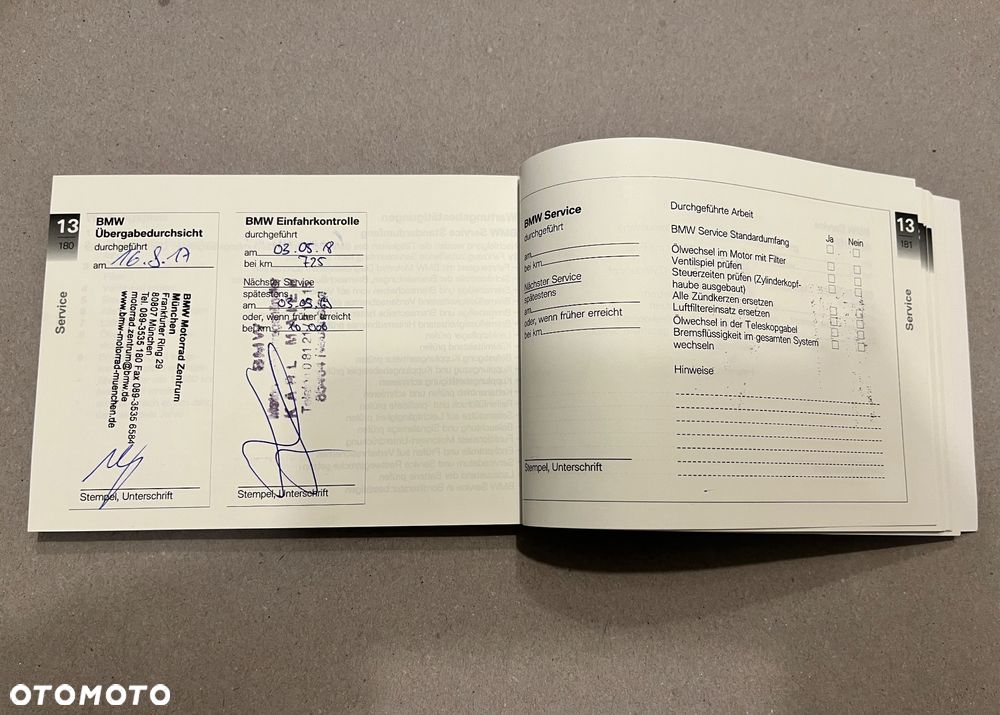 13
180
Service
BMW
Übergabedurchsicht
durchgeführt
am 16.8.17
BMW Motorrad Zentrum
München
Frankfurter Ring 29
80807 München
Tel. 089-3535 180 Fax 089-3535 6584
motorrad.zentrum@bmw.de
www.bmw-motorrad-muenchen.de
Stempel, Unterschrift
BMW Einfahrkontrolle
durchgeführt
am 03.05.18
bei km 725
Nächster Service
spätestens
am 03.05.19
oder, wenn früher erreicht
bei km 10.000
KARL
Stempel, Unterschrift
BMW Service
durchgeführt
am
bei km
Nächster Service
spätestens
am
oder, wenn früher erreicht
bei km
Stempel, Unterschrift
Durchgeführte Arbeit
BMW Service Standardumfang Ja Nein
Ölwechsel im Motor mit Filter
Ventilspiel prüfen
Steuerzeiten prüfen (Zylinderkopf-
haube ausgebaut)
Alle Zündkerzen ersetzen
Luftfiltereinsatz ersetzen
Ölwechsel in der Teleskopgabel
Bremsflüssigkeit im gesamten System
wechseln
Hinweise
13
181
Service
OTOMOTO